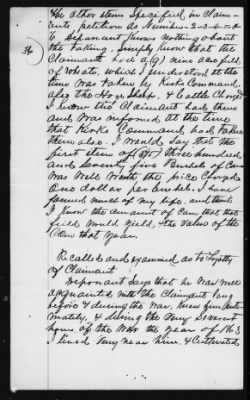 The other items Specified in Claim-
ants petition as Numbers 2-3-4-5 &
6 Deponent knows nothing about
the taking. Simply know that the
Claimant had a (9) nine acre field
of wheat, which I understood at the
time was taken by Kirks Command,
also the Hogs, Sheep, & Cattle Charged
I know the Claimant had them
and was informed at the time
that Kirks Command had taken
them also. I would say that the
first item of three hundred
and seventy five Bushels of Corn
was Well Worth the price Charged
One dollar per bushel. I have
farmed much of my life, and think
I know the amount of Corn that that
field would yield, & the value of the
Corn that year.
Recalled and examined as to Loyalty
of Claimant
Deponent Says that he was well
acquainted with the Claimant long
before & during the war, knew him inti-
mately, & during the very Severest
hours of the War the year of 1863
I lived very near him, & cultivated
36